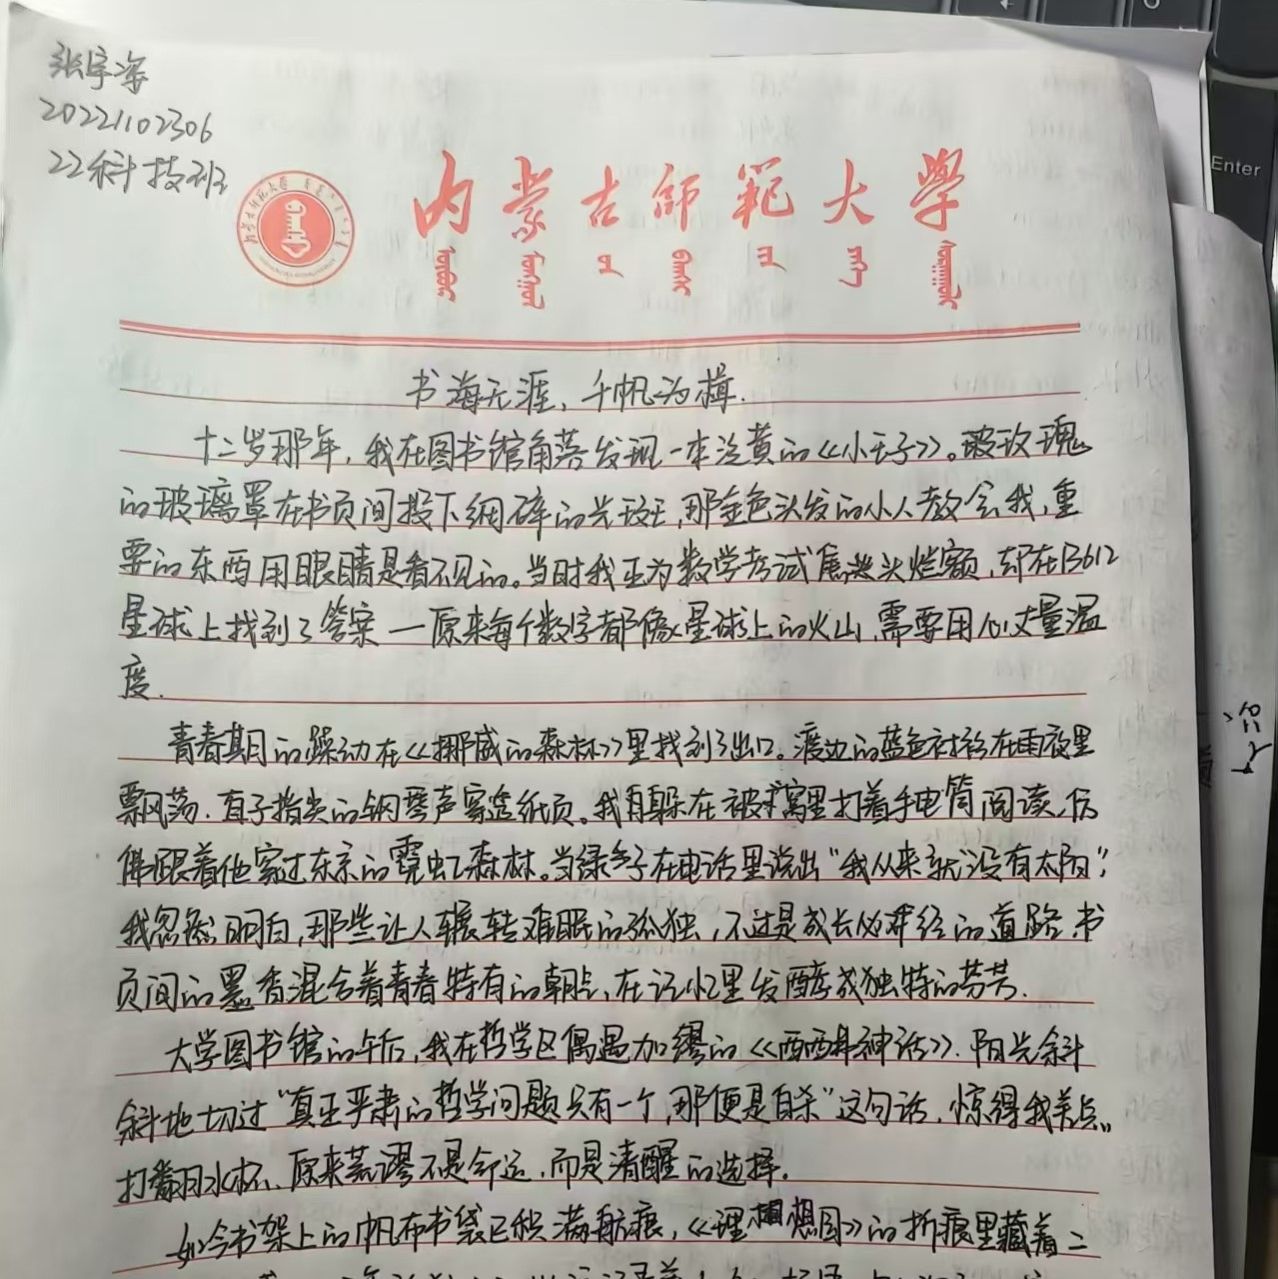 张宇
20221102306
22科技班
内蒙古师範大學
Enter
书海无涯，千帆为楫.
十二岁那年，我在图书馆角落发现一本泛黄的《小王子》。玻玫瑰
的玻璃罩在书页间投下细碎的光斑，那金色头发的小人教会我，重
要的东西用眼睛是看不见的。当时我正为数学考试焦头烂额，却在B612
星球上找到了答案—原来每个数字都像星球上的火山，需要用心丈量温
度.
青春期的躁动在《挪威的森林》里找到了出口。渡边的蓝色衬衫在雨夜里
飘荡.直子指尖的钢琴声穿透纸页。我躲在被窝里打着手电筒阅读，仿
佛跟着他穿过东京的霓虹森林。当绿子在电话里说出“我从来就没有太阳”，
我忽然明白，那些让人辗转难眠的孤独，不过是成长必经的道路.书
页间的墨香混合着青春特有的潮，在记忆里发酵成独特的芬芳.
大学图书馆的午后，我在哲学区偶遇加缪的《西西弗神话》.阳光斜
斜地切过“真正严肃的哲学问题只有一个，那便是自杀”这句话，惊得我差点
打翻水杯、原来荒谬不是命运，而是清醒的选择。
如今书架上的帆布书袋已积满航痕，《理想国》的折痕里藏着二